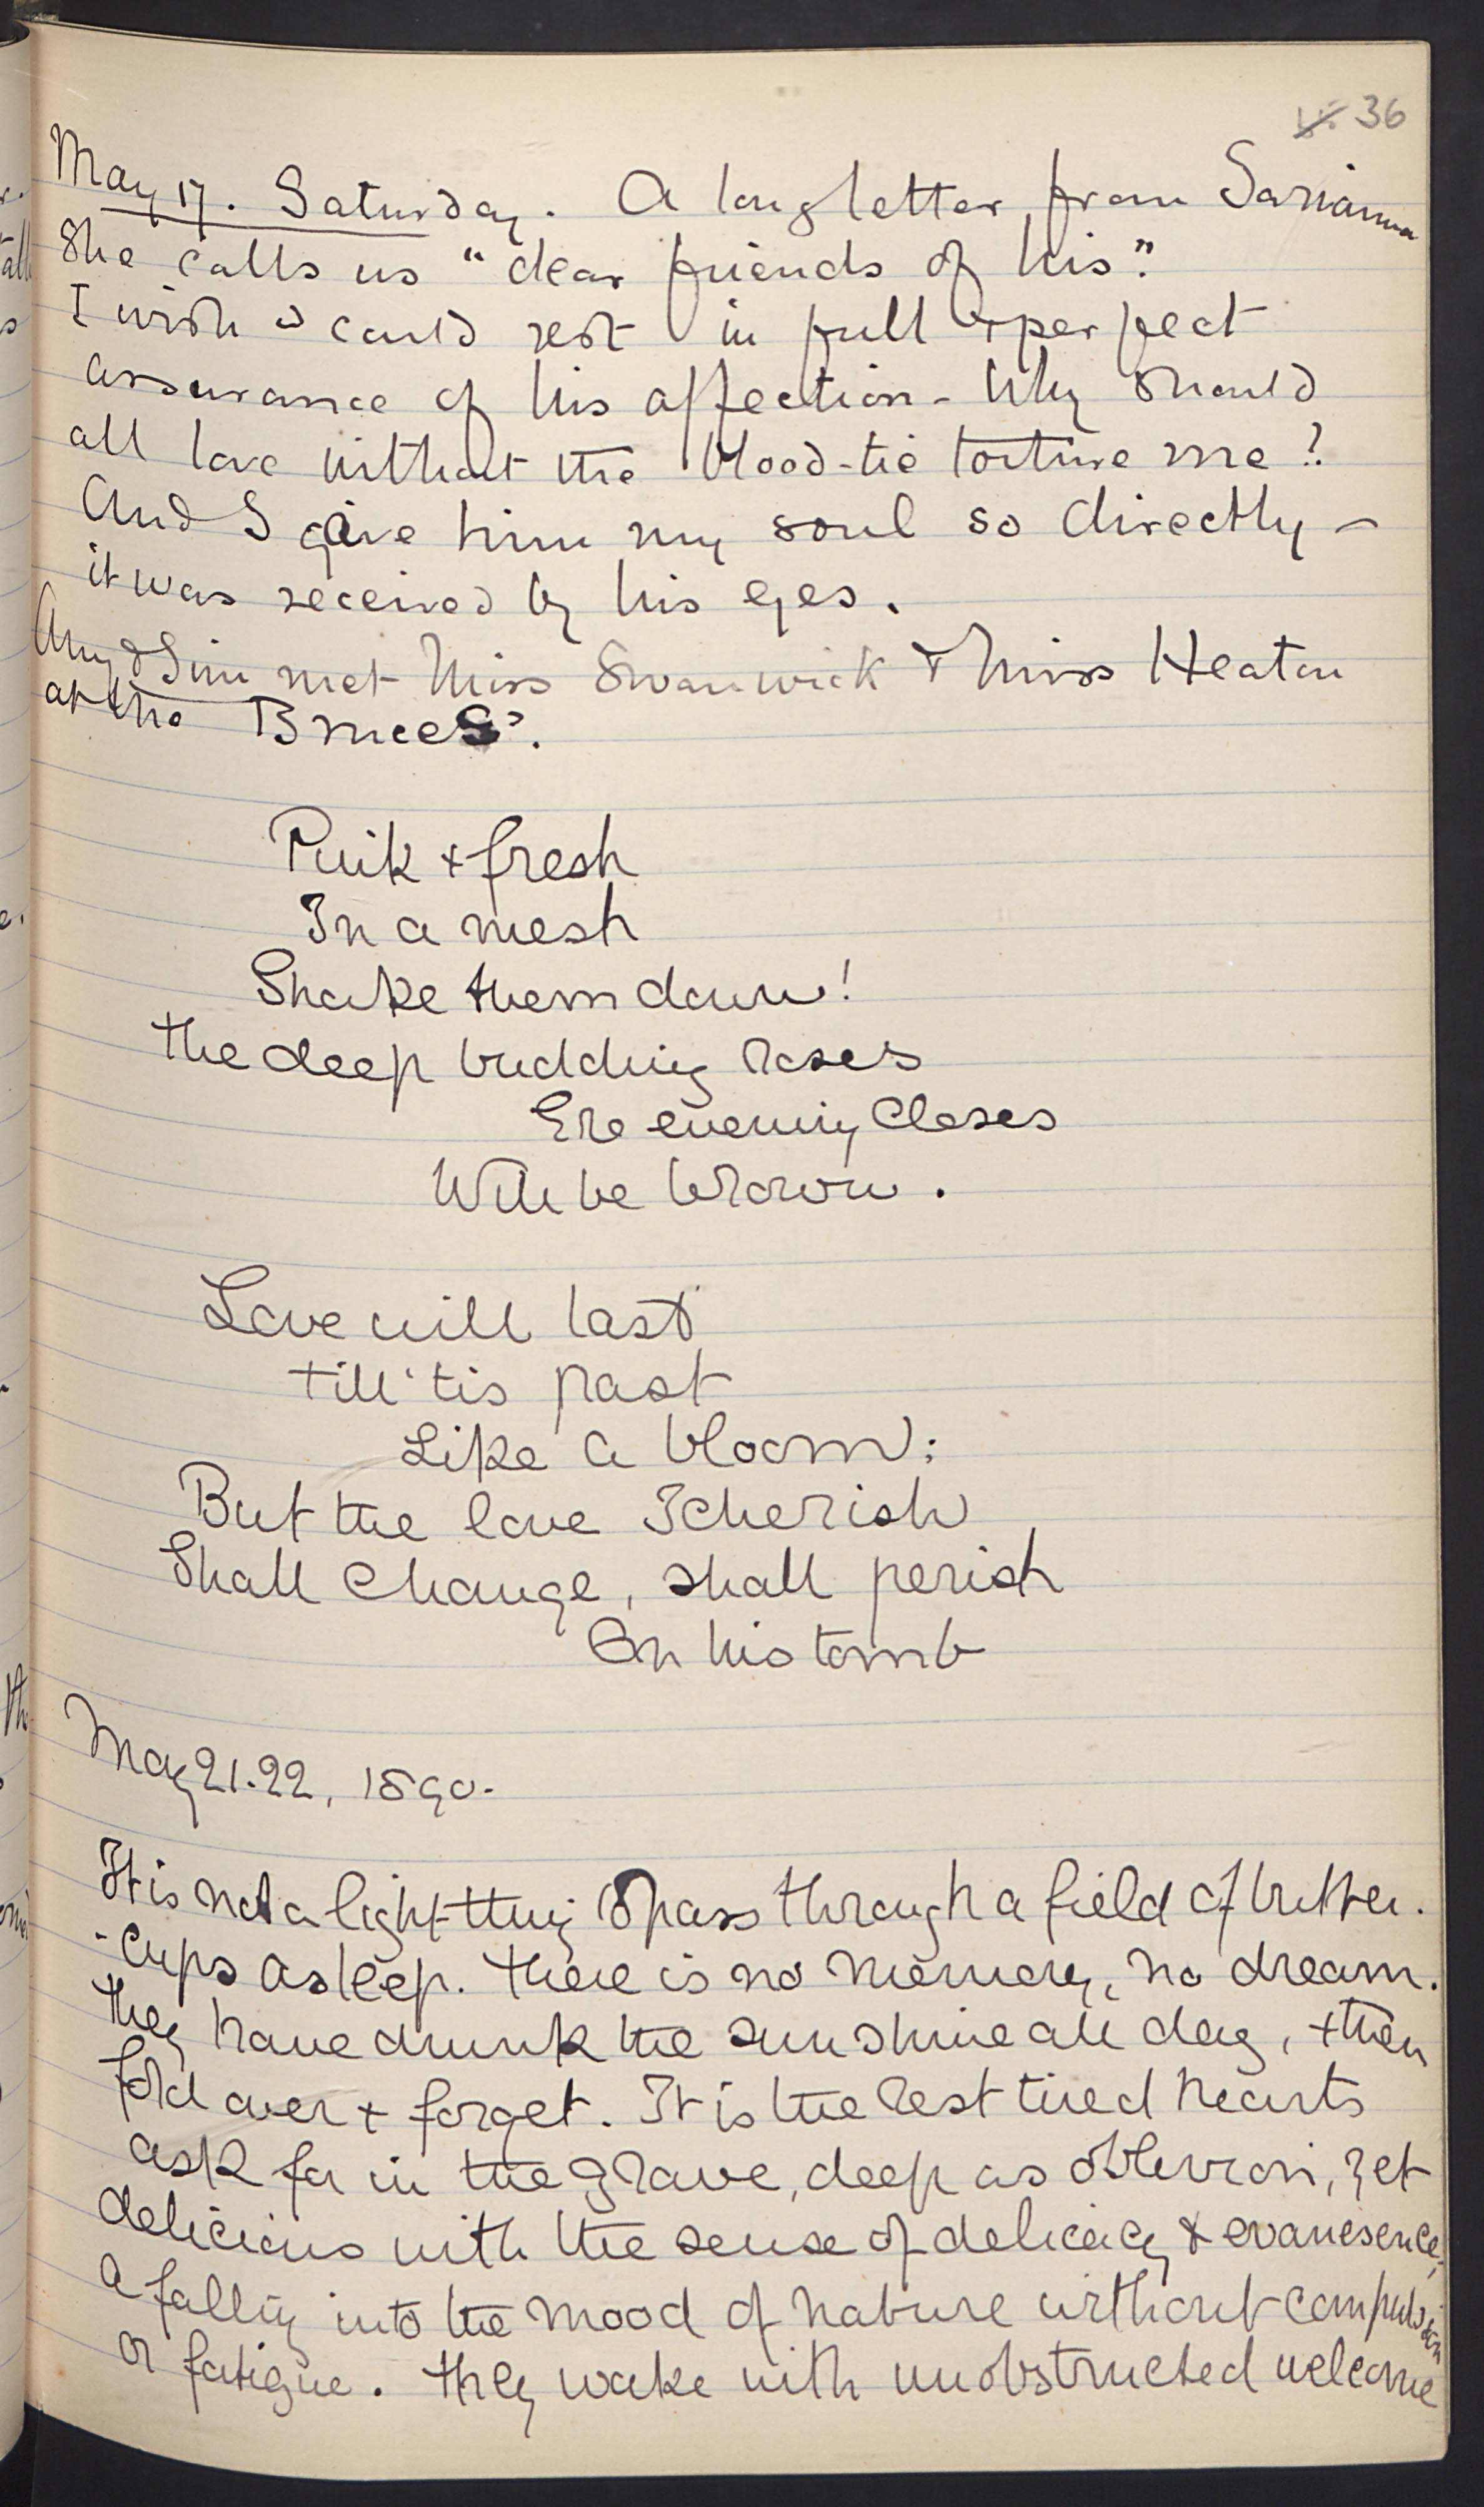 36
May 17. Saturday. A long letter from Sarianna
She calls us "dear friends of his".
I wish I could rest in full & perfect
assurance of his affection - Why should
all love without the blood-tie torture me?
And I gave him my soul so directly -
it was received by his eyes.
Amy & Sim met Miss Swanwick & Miss Heaton
at the Bruces'.
Pink & fresh
In a mesh
Shake them down!
The deep budding roses
Ere evening closes
Will be brown.
Love will last
till 'tis past
Like a bloom;
But the love I cherish
Shall change, shall perish
On his tomb
May 21.22, 1890.
It is not a light thing to pass through a field of butter.
-cups asleep. There is no memory, no dream.
They have drunk the sunshine all day, & then
fold over & forget. It is the rest tired hearts
ask for in the grave, deep as oblivion, yet
delicious with the sense of delicacy & evanesence,
a falling into the mood of nature without compulsion
or fatigue. They wake with unobstructed welcome